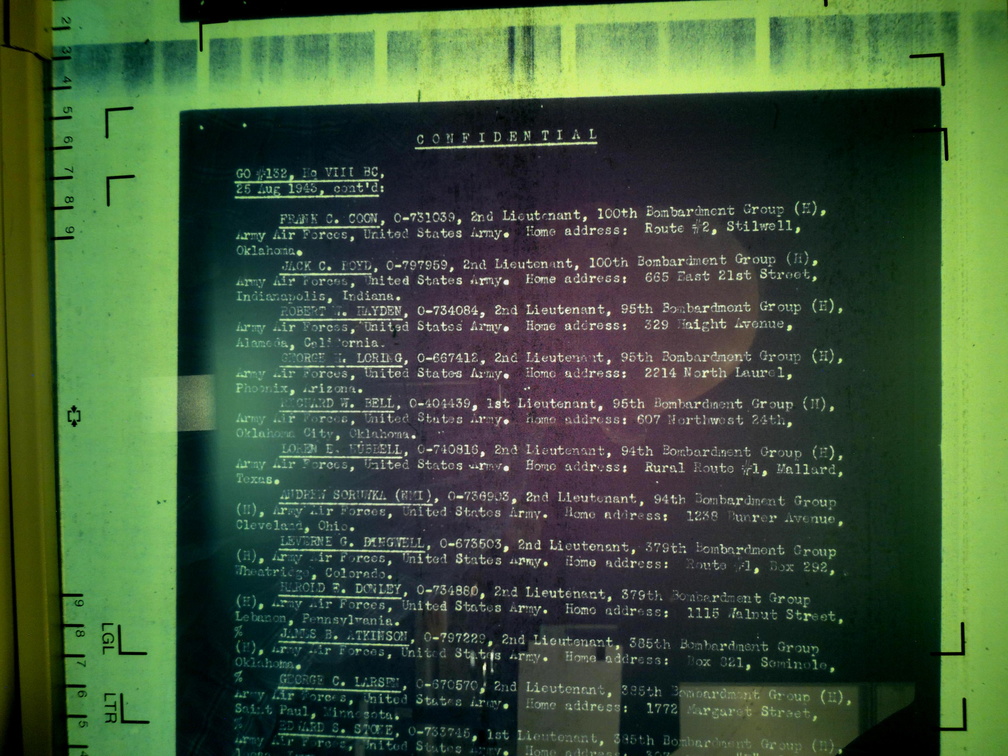 C O N F I D E N T I A L
GO #132, Hq VIII BC,
25 Aug 1943, cont'd:
FRANK C. COON, O-731039, 2nd Lieutenant, 100th Bombardment Group (H),
Army Air Forces, United States Army. Home address: Route #2, Stilwell,
Oklahoma.
JACK C. BOYD, O-797959, 2nd Lieutenant, 100th Bombardment Group (H),
Army Air Forces, United States Army. Home address: 665 East 21st Street,
Indianapolis, Indiana.
ROBERT HAYDEN, O-734084, 2nd Lieutenant, 95th Bombardment Group (H),
Army Air Forces, United States Army. Home address: 329 Haight Avenue,
Alameda, California.
GEORGE H. LORING, O-667412, 2nd Lieutenant, 95th Bombardment Group (H),
Army Air Forces, United States Army. Home address: 2214 North Laurel,
Phoenix, Arizona.
RICHARD W. BELL, O-404439, 1st Lieutenant, 95th Bombardment Group (H),
Army Air Forces, United States Army. Home address: 607 Northwest 24th,
Oklahoma City, Oklahoma.
LOREN E. HUBBELL, O-740816, 2nd Lieutenant, 94th Bombardment Group (H),
Army Air Forces, United States Army. Home address: Rural Route #1, Mallard,
Texas.
ANDREW SORUNKA (NMI), O-736903, 2nd Lieutenant, 94th Bombardment Group
(H), Army Air Forces, United States Army. Home address: 1238 Avenue,
Cleveland, Ohio.
LEVERNE G. DINGWELL, O-673503, 2nd Lieutenant, 379th Bombardment Group
(H), Army Air Forces, United States Army. Home address: Route #1, Box 292,
Wheatridge, Colorado.
HAROLD DONLEY, O-734880, 2nd Lieutenant, 379th Bombardment Group
(H), Army Air Forces, United States Army. Home address: 1115 Walnut Street,
Lebanon, Pennsylvania.
%
JAMES B. ATKINSON, O-797229, 2nd Lieutenant, 385th Bombardment Group
(H), Army Air Forces, United States Army. Home address: Box 821, Seminole,
Oklahoma.
%
GEORGE C. LARSEN, O-670570, 2nd Lieutenant, 385th Bombardment Group (H),
Army Air Forces, United States Army. Home address: 1772 Margaret Street,
Saint Paul, Minnesota.
%
EDWARD S. STONE, O-733745, 1st Lieutenant, 385th Bombardment Group (H),
Army Air Forces, United States Army. Home address:
2
3
4
5
6
7
8
9
9
8
7
6
5
LGL
LTR